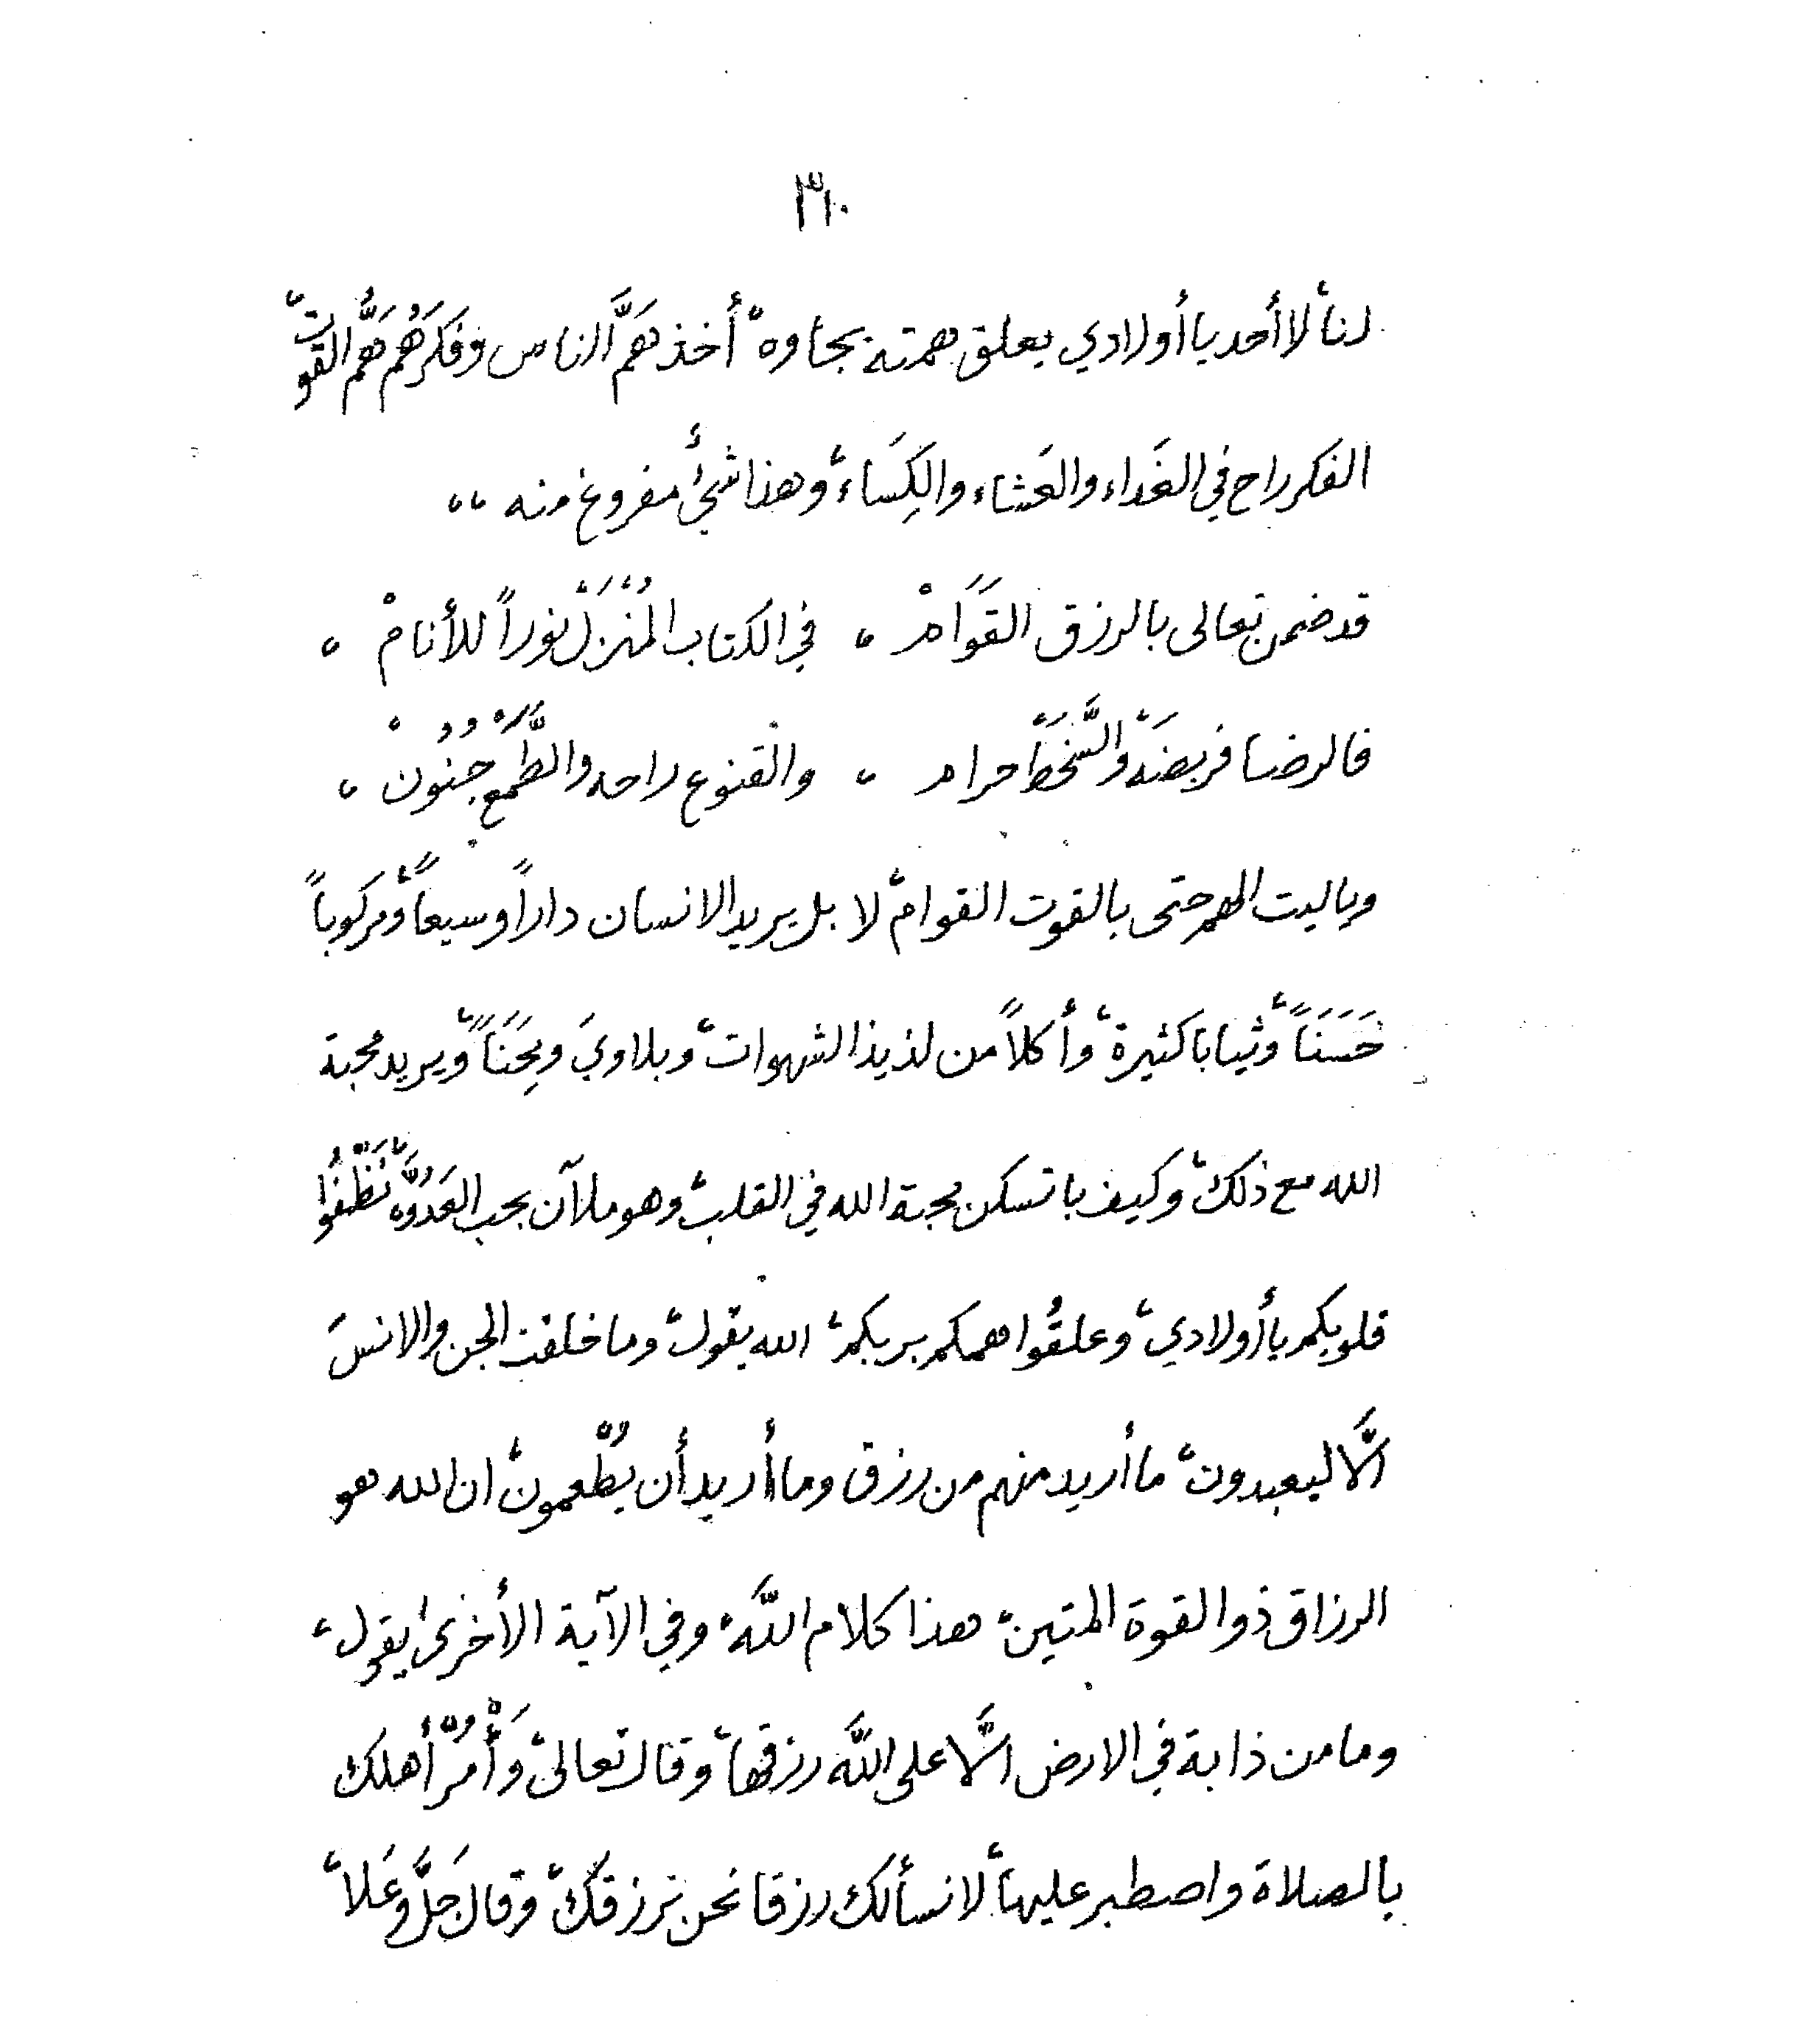 ٣١٠
لنا، لا أحد يا أولادي يعلق همته بجاوه، أخذ هَمَّ الناس وفكرَهُم هَمُّ القوت،
الفكر راح في الغَداء والعَشاء والكِسَاء، وهذا شيءٌ مفروغ منه ،،
قد ضمن تعالى بالرزق القَوَامْ ، في الكتاب المُنْزَلْ نوراً للأنامْ ،
فالرضا فريضَهْ والسَّخَطْ حرام ، والقنوع راحه والطَّمَعْ جُنُونْ ،
وياليت الهم حتى بالقوت القوام، لا بل يريد الانسان داراً وسيعاً، ومركوباً
حَسَنَاً، وثيابا كثيرة، وأكلاً من لذيذ الشهوات، وبلاويَ ومِحَنَاً، ويريد محبة
الله مع ذلك، وكيف با تسكن محبة الله في القلب، وهو ملآن بحب العَدُوَّه، نَظِّفُوا
قلوبكم يا أولادي، وعلقُوا هممكم بربكم، الله يقول، وما خلقت الجن والانسَ
الَّا ليعبدون، ما أريد منهم من رزق وما أريد أن يُطْعمون، ان الله هو
الرزاق ذو القوة المتين، هذا كلام اللَّه، وفي الآية الأخرى يقول،
وما من دابة في الارض الَّا على اللَّه رزقها، وقال تعالى، وَأْمُرْ أهلك
بالصلاة واصطبر عليها، لا نسألك رزقا نحن نرزقك، وقال جَلَّ وعَلا،